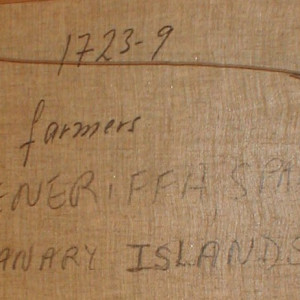 1723-9
farmers
ENERIFFA SPA
ANARY ISLANDS